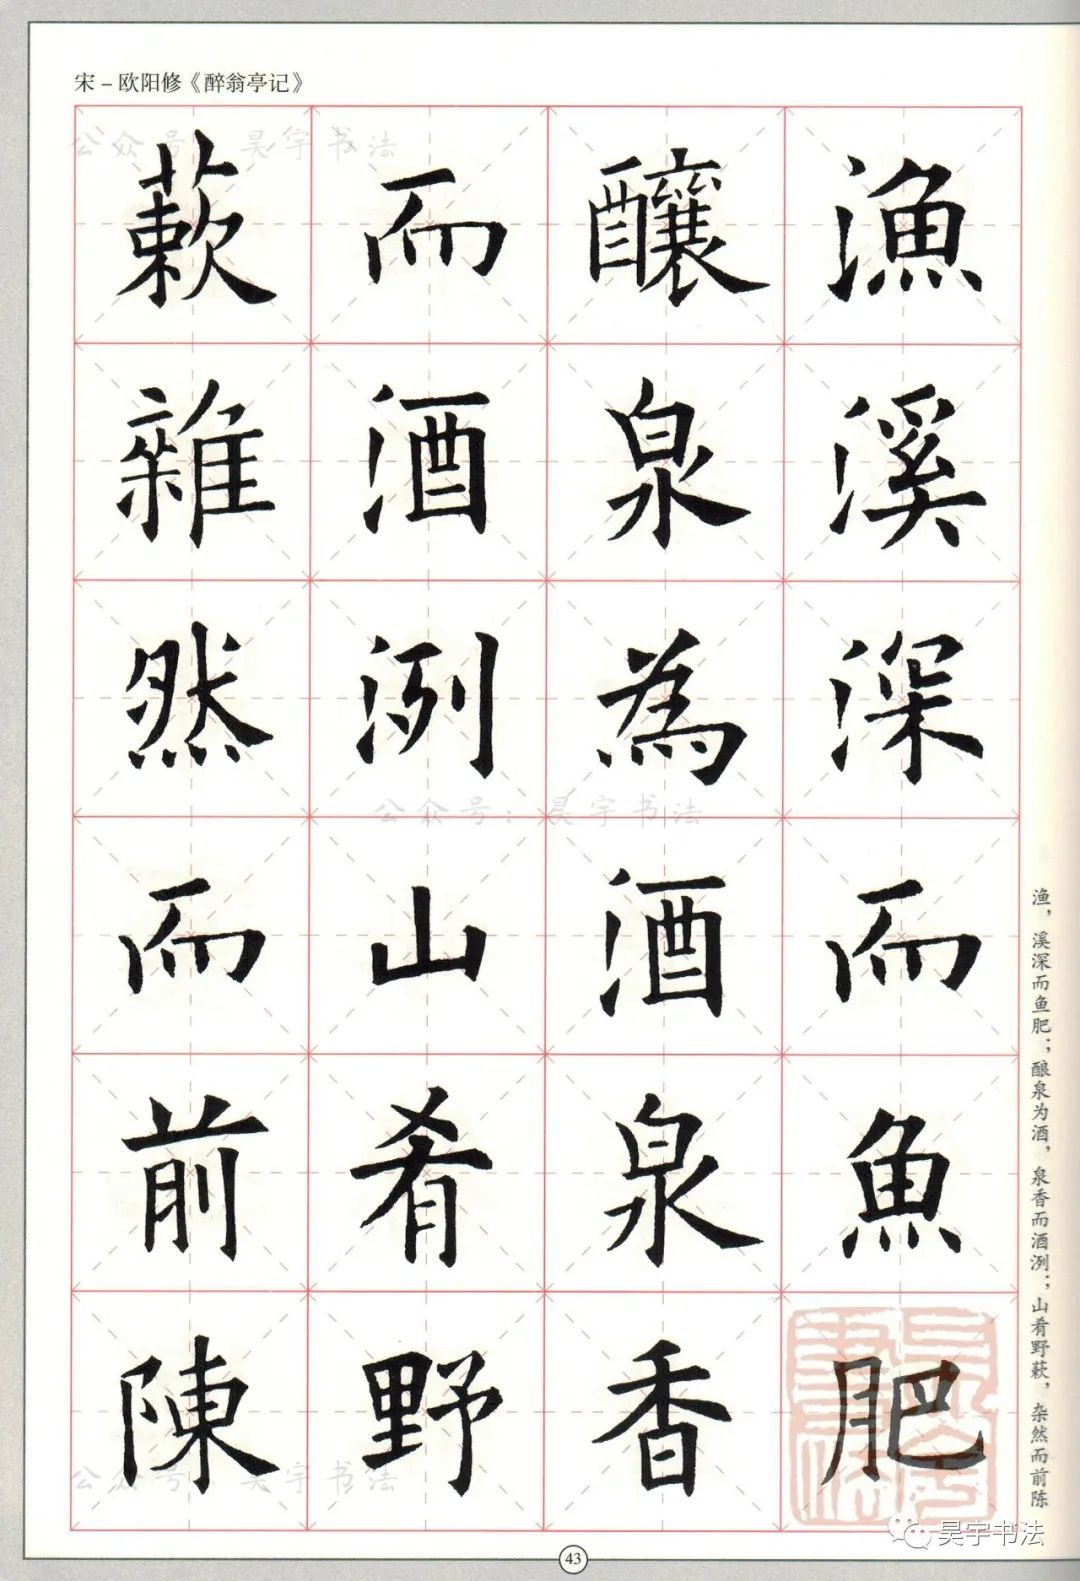 宋–欧阳修《醉翁亭记》
漁溪深而魚肥
釀泉為酒泉香
而酒洌山肴野
蔌雜然而前陳
渔，溪深而鱼肥；酿泉为酒，泉香而酒洌；山肴野蔌，杂然而前陈
公众号：昊宇书法
公众号：昊宇书法
公众号：昊宇书法
昊宇书法
43